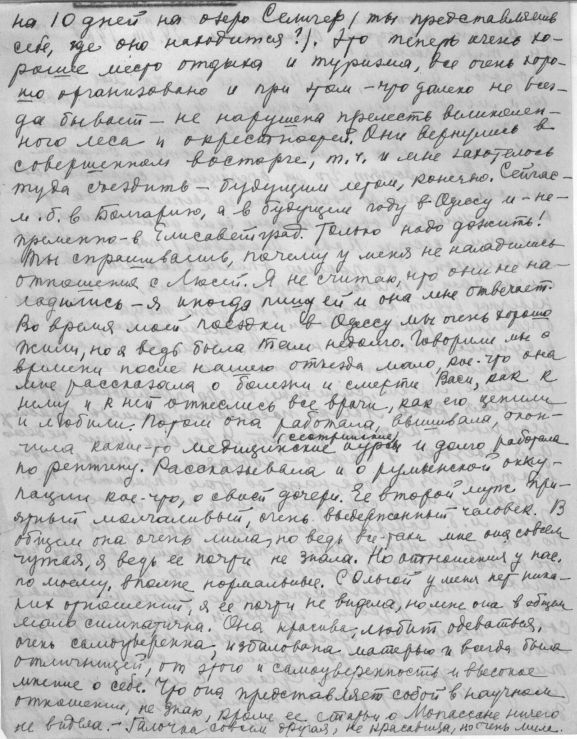 на 10 дней на озеро Селигер (ты представляешь
себе, где оно находится?). Это теперь очень хо-
рошее место отдыха и туризма, все очень хоро-
шо организовано и при этом – что далеко не всег-
да бывает – не нарушена прелесть великолеп-
ного леса и окрестностей. Они вернулись в
совершенном восторге, т.ч. и мне захотелось
туда съездить – будущим летом, конечно. Сейчас –
м.б. в Болгарию, а в будущем году в Одессу и – не-
пременно – в Елисаветград. Только надо дожить!
Ты спрашиваешь, почему у меня не наладились
отношения с Люсей. Я не считаю, что они не на-
ладились – я иногда пишу ей и она мне отвечает.
Во время моей поездки в Одессу мы очень хорошо
жили, но я ведь была там недолго. Говорили мы о
времени после нашего отъезда мало, кое-что она
мне рассказала о болезни и смерти Васи, как к
нему и к ней отнеслись все врачи, как его ценили
и любили. Потом она работала, вышивала, окон-
чила какие-то медицинские (сестринские) курсы и долго работала
по рентгену. Рассказывала и о румынской окку-
пации кое-что, о своей дочери. Ее второй муж при-
ятный молчаливый, очень выдержанный человек. В
общем она очень мила, но ведь все-таки мне она совсем
чужая, я ведь ее почти не знала. Но отношения у нас,
по моему, вполне нормальные. С Ольгой у меня нет ника-
ких отношений, я ее почти не видела, но мне она в общем
мало симпатична. Она красива, любит одеваться,
очень самоуверенна, избалована матерью и всегда была
отличницей, от этого и самоуверенность и высокое
мнение о себе. Что она представляет собой в научном
отношении, не знаю, кроме ее статьи о Мопассане ничего
не видела. – Галочка совсем другая, не красавица, но очень мила.